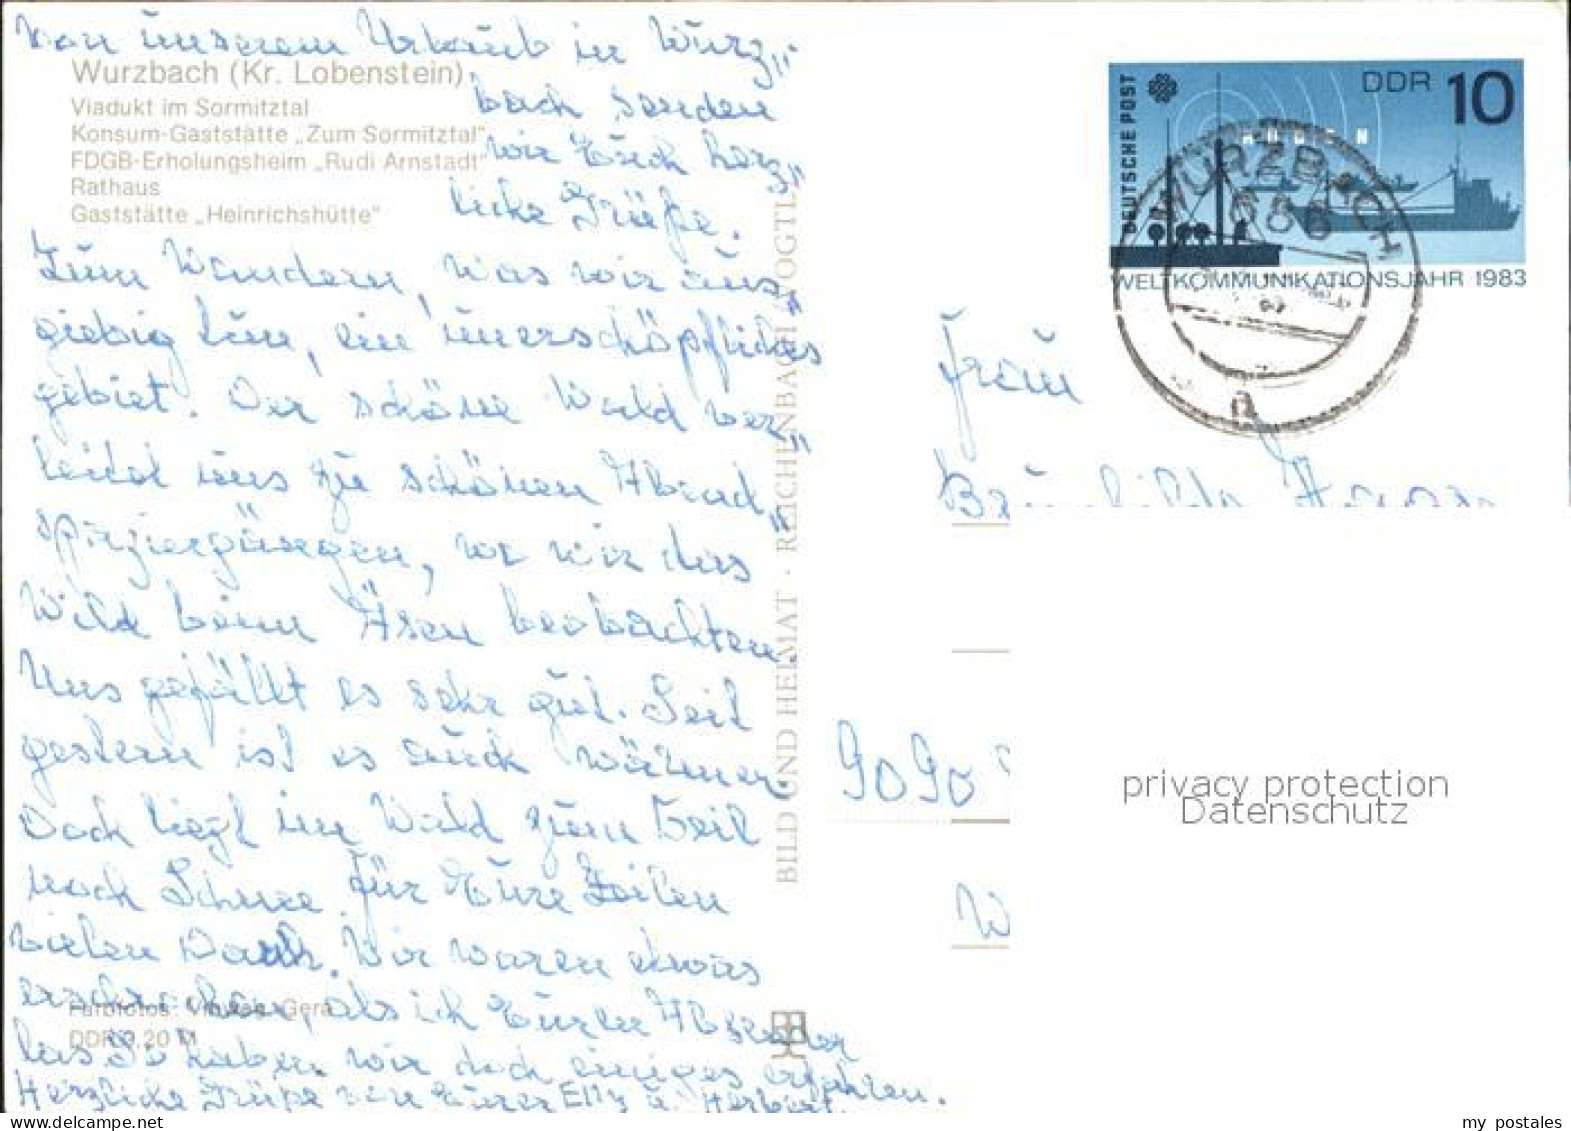 Von unserem Urlaub in Wurz„
bach senden
wir Euch herz„
liche Grüße.
Zum Wandern, was wir aus„
giebig tun, ein unerschöpfliches
gebiet. Der schöne Wald ver„
leitet uns zu schönen Abend„
spaziergängen, wo wir das
Wild beim Äsen beobachten.
Uns gefällt es sehr gut. Seit
gestern ist es auch wärmer.
Doch liegt im Wald zum Teil
noch Schnee. Für Eure Zeilen
vielen Dank. Wir waren etwas
erschrocken, als ich Euren Absender
las. So haben wir doch einiges erfahren.
Herzliche Grüße von Eurer Elly u. Herbert.
Wurzbach (Kr. Lobenstein)
Viadukt im Sormitztal
Konsum-Gaststätte „Zum Sormitztal"
FDGB-Erholungsheim „Rudi Arnstadt"
Rathaus
Gaststätte „Heinrichshütte"
Farbfotos: Gera
DDR 0,20 M
BILD UND HEIMAT · REICHENBACH (VOGTL)
DEUTSCHE POST
DDR 10
WELTKOMMUNIKATIONSJAHR 1983
WURZBACH
a
Frau
9090
W
privacy protection
Datenschutz
my postales